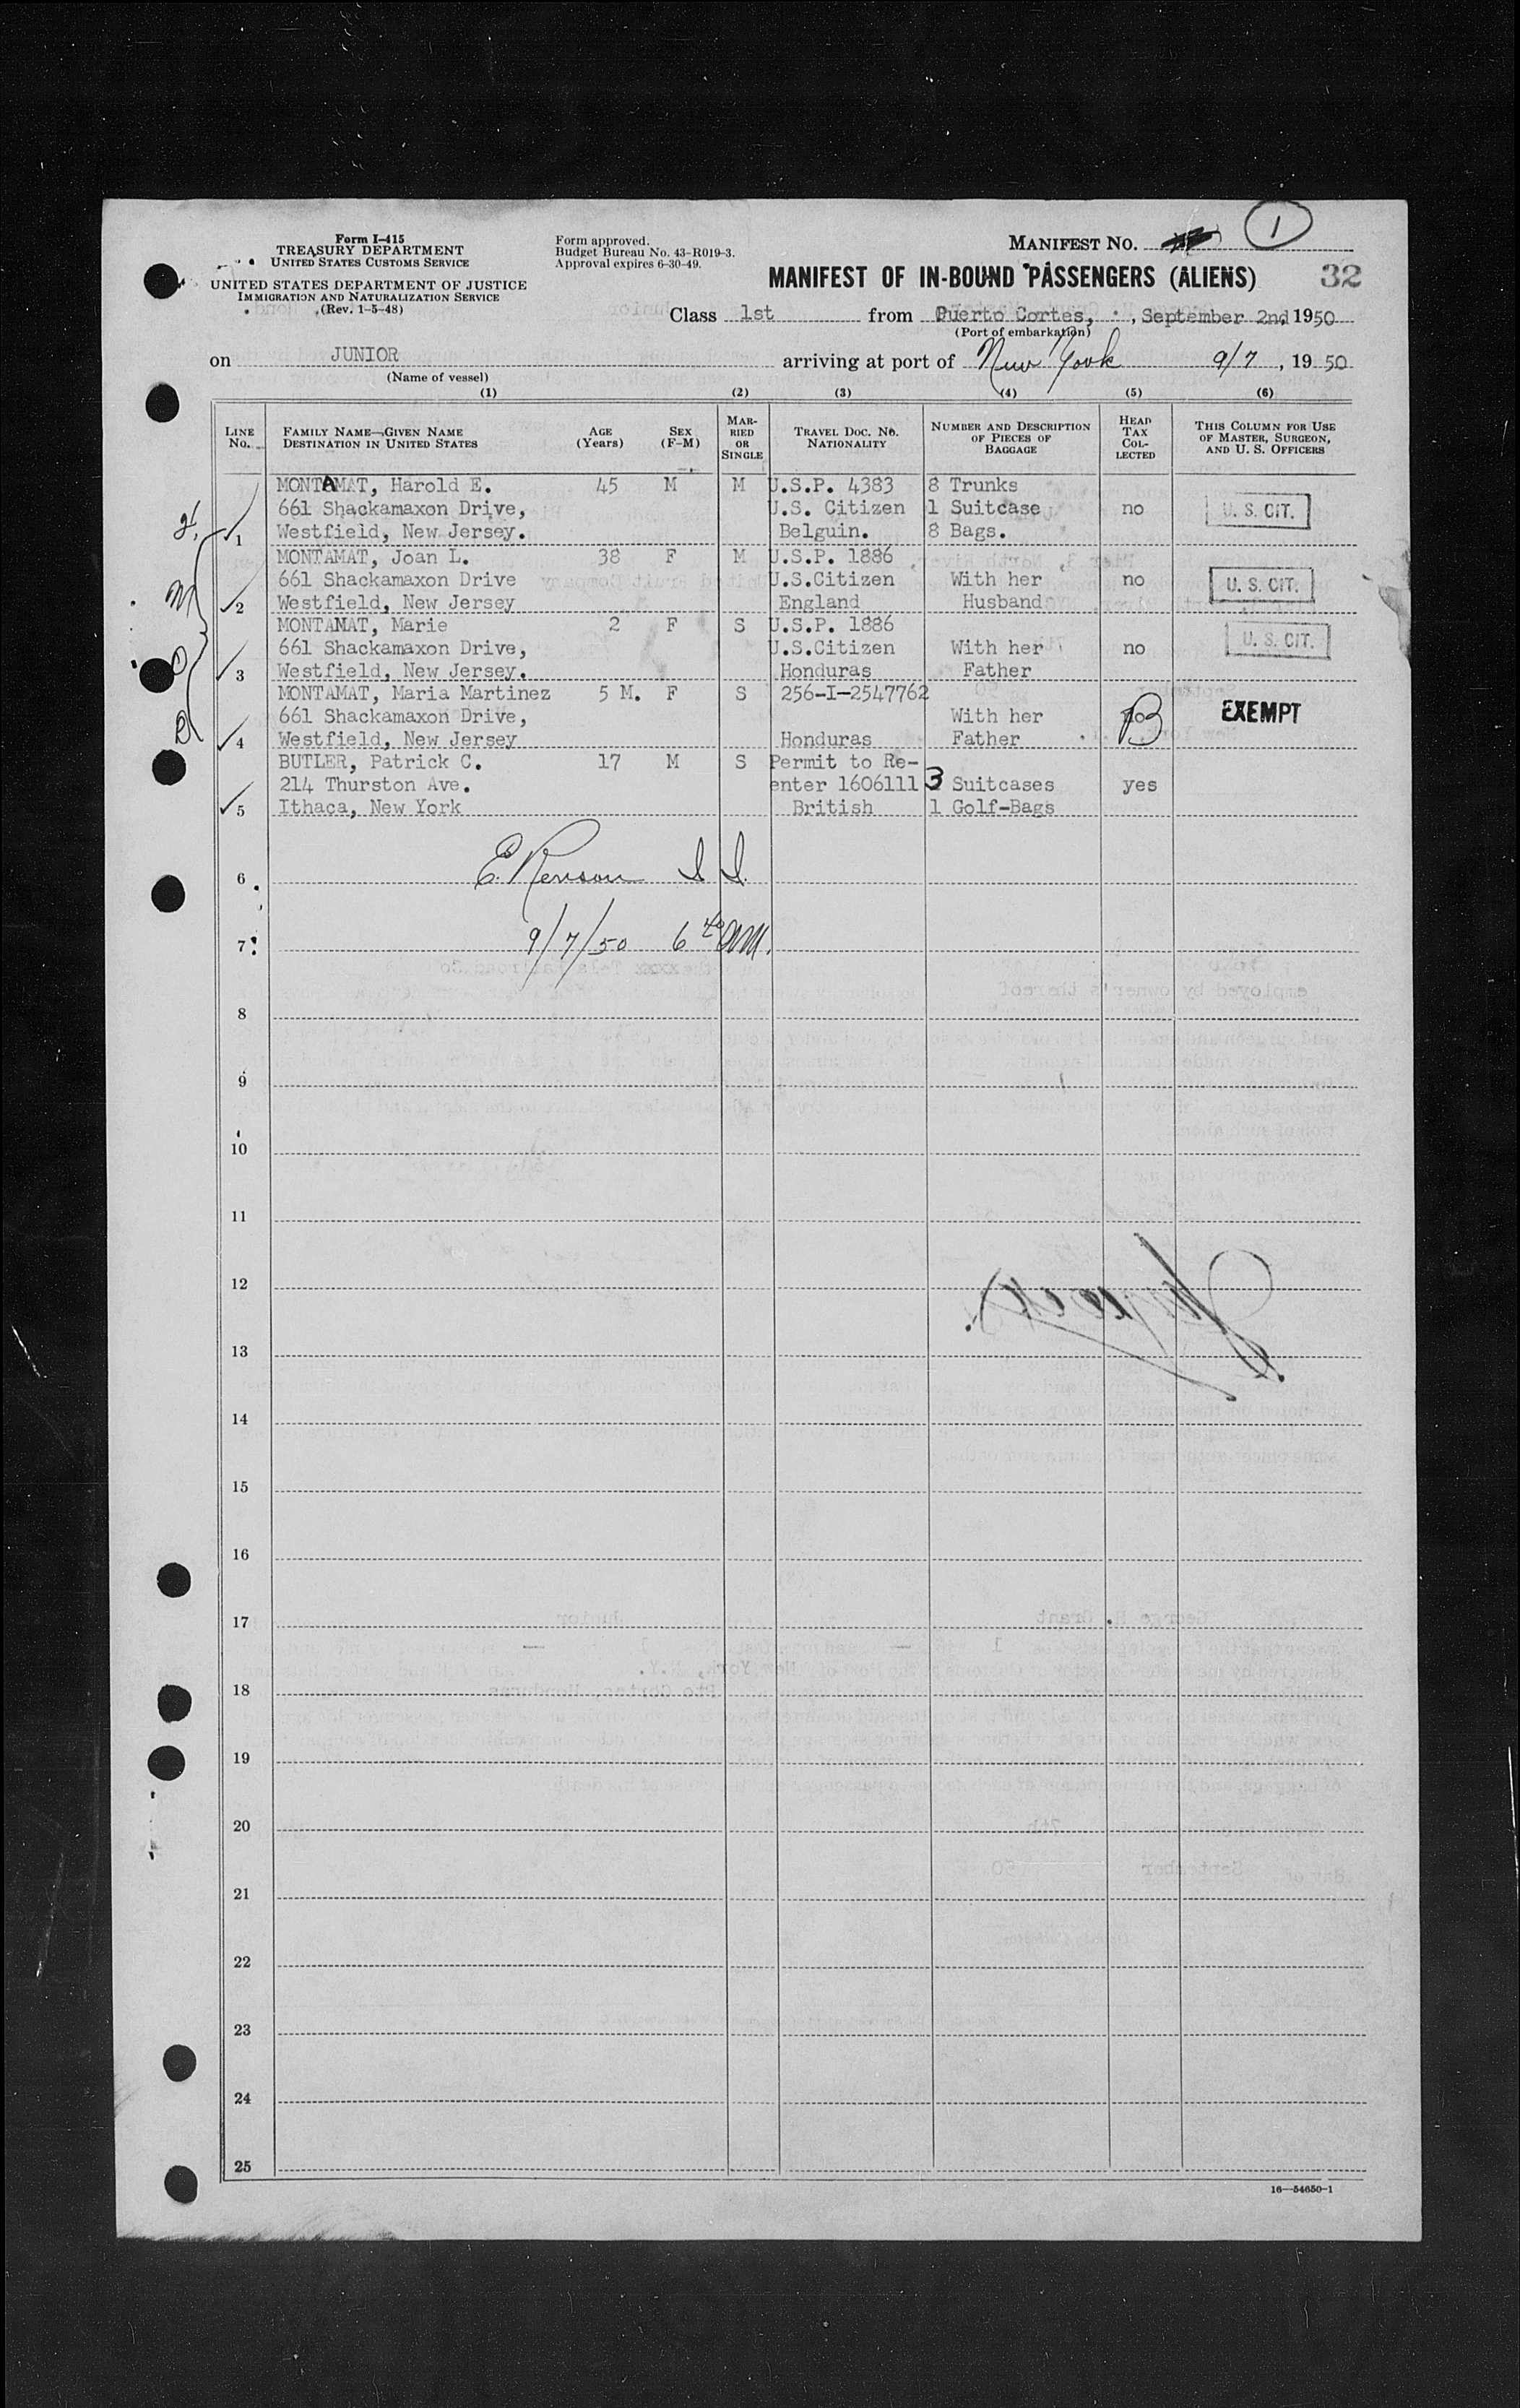 Form I-415
TREASURY DEPARTMENT
UNITED STATES CUSTOMS SERVICE
UNITED STATES DEPARTMENT OF JUSTICE
IMMIGRATION AND NATURALIZATION SERVICE
(Rev. 1-5-48)
Form approved.
Budget Bureau No. 43-R019-3.
Approval expires 6-30-49.
MANIFEST NO. 1
MANIFEST OF IN-BOUND PASSENGERS (ALIENS) 32
Class 1st from Puerto Cortes, , September 2nd, 1950
(Port of embarkation)
on JUNIOR arriving at port of New York 9/7, 1950
(Name of vessel)
(1) (2) (3) (4) (5) (6)
LINE No. FAMILY NAME—GIVEN NAME DESTINATION IN UNITED STATES AGE (Years) SEX (F-M) MARRIED OR SINGLE TRAVEL DOC. NO. NATIONALITY NUMBER AND DESCRIPTION OF PIECES OF BAGGAGE HEAD TAX COLLECTED THIS COLUMN FOR USE OF MASTER, SURGEON, AND U. S. OFFICERS
MONTAMAT, Harold E. 45 M M U.S.P. 4383 8 Trunks
661 Shackamaxon Drive, U.S. Citizen 1 Suitcase no U. S. CIT.
1 Westfield, New Jersey. Belguin. 8 Bags.
MONTAMAT, Joan L. 38 F M U.S.P. 1886
661 Shackamaxon Drive U.S.Citizen With her no U. S. CIT.
2 Westfield, New Jersey England Husband
MONTAMAT, Marie 2 F S U.S.P. 1886
661 Shackamaxon Drive, U.S.Citizen With her no U. S. CIT.
3 Westfield, New Jersey. Honduras Father
MONTAMAT, Maria Martinez 5 M. F S 256-I-2547762
661 Shackamaxon Drive, With her no B EXEMPT
4 Westfield, New Jersey Honduras Father
BUTLER, Patrick C. 17 M S Permit to Re-
214 Thurston Ave. enter 1606111 3 Suitcases yes
5 Ithaca, New York British 1 Golf-Bags
6 E. Renson I I.
7 9/7/50 6 AM.
8
9
10
11
12
13
14
15
16
17
18
19
20
21
22
23
24
25
16—54650-1